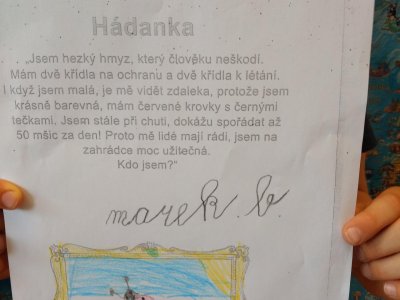 Hádanka
„Jsem hezký hmyz, který člověku neškodí.
Mám dvě křídla na ochranu a dvě křídla k létání.
I když jsem malá, je mě vidět zdaleka, protože jsem
krásně barevná, mám červené krovky s černými
tečkami. Jsem stále při chuti, dokážu spořádat až
50 mšic za den! Proto mě lidé mají rádi, jsem na
zahrádce moc užitečná.
Kdo jsem?“
marek. b.